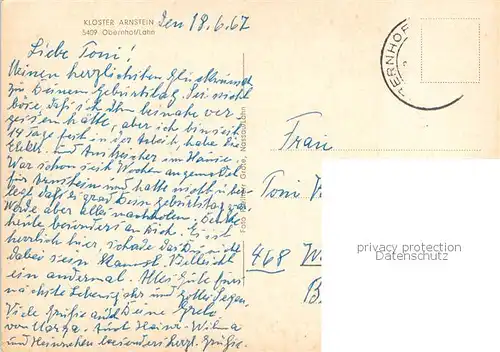 KLOSTER ARNSTEIN
5409 Obernhof/Lahn
Den 18.6.67
Liebe Toni!
Meinen herzlichsten Glückwunsch
zu Deinem Geburtstag. Sei nicht
böse daß ich ihn beinahe ver
gessen hätte, aber ich bin seit
14 Tage fest in der Arbeit, habe die
Elektr. und Anstreicher im Hause.
War schon seit Wochen angemeldet
für Arnstein und hatte nicht über
legt, daß es grad Dein Geburtstag war
Werde aber alles nachholen. Denke
heute besonders an Dich. Es ist
herrlich hier, schade das Du nicht
dabei sein kannst. Vielleicht
ein andermal. Alles Gute fürs
nächste Lebensjahr und Gottes Segen.
Viele Grüße auch Deine Grete
von Marga. Auch Heini - Wilma
und Heinzchen besonders herzl. Grüße.
Foto Grote, Nassau/Lahn
ERNHOF
Frau
Toni
468
privacy protection
www.ansichtskartenversand.com